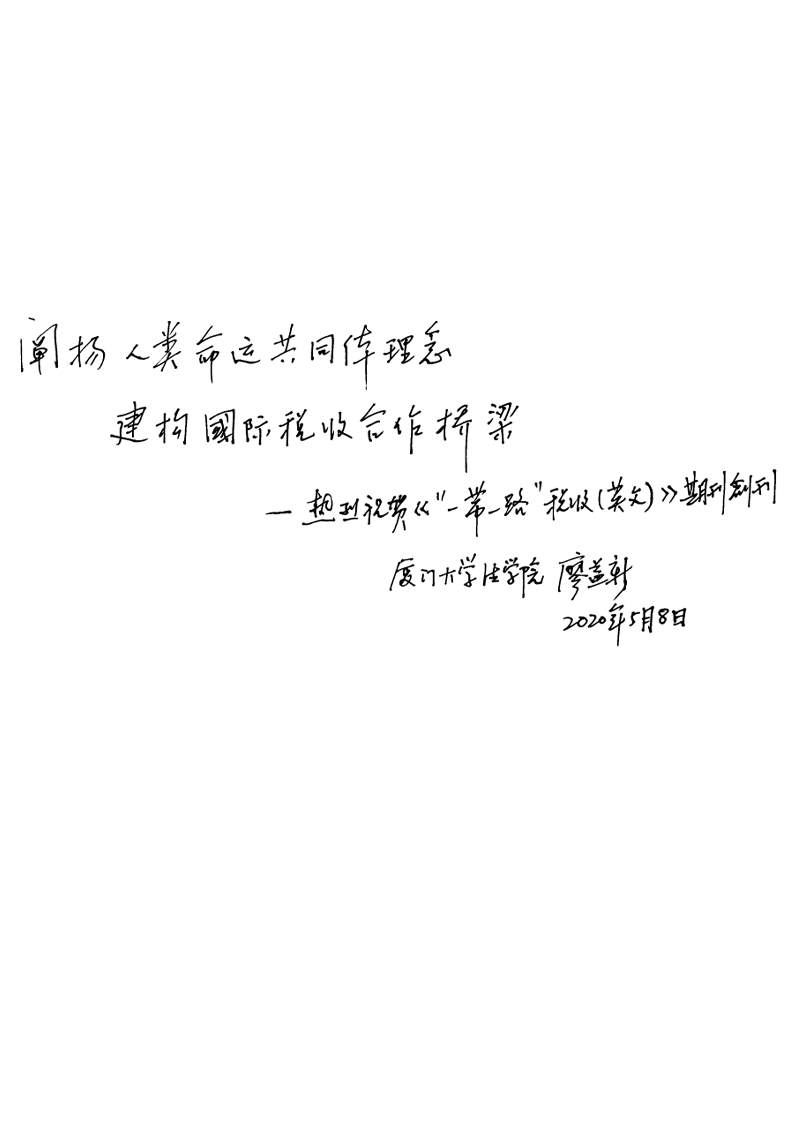 阐扬人类命运共同体理念
建构國际税收合作桥梁
—热烈祝贺《“一带一路”税收(英文)》期刊創刊
厦门大学法学院 廖益新
2020年5月8日